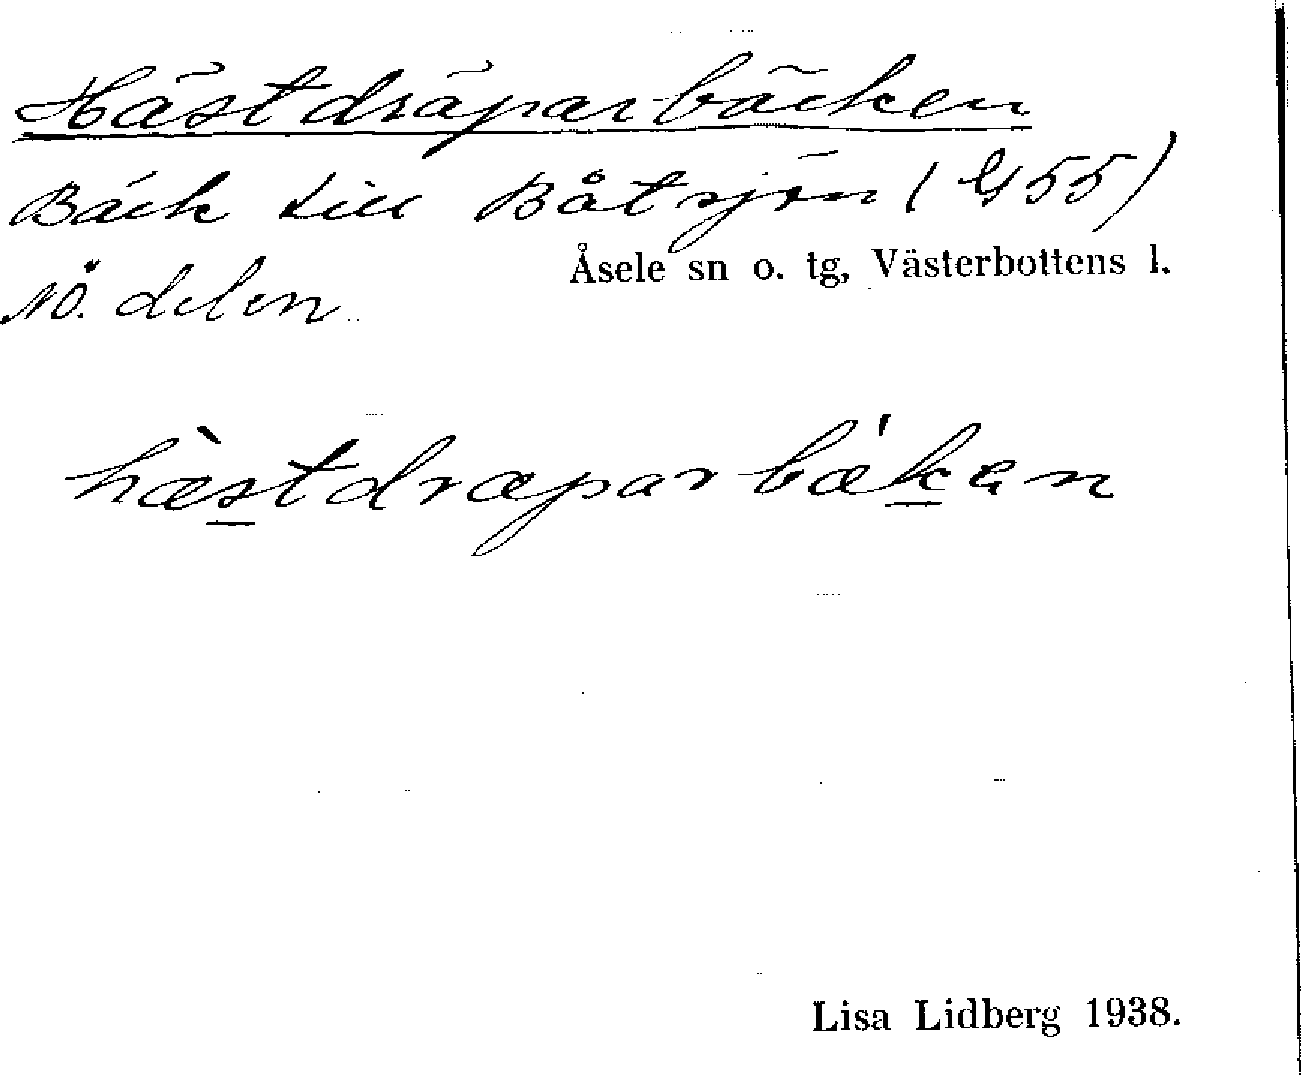 Hästdräparbäcken
Bäck till Båtsjön (G55)
Åsele sn o. tg, Västerbottens l.
NÖ. delen
hæ̀stdræparbæ'ken
Lisa Lidberg 1938.